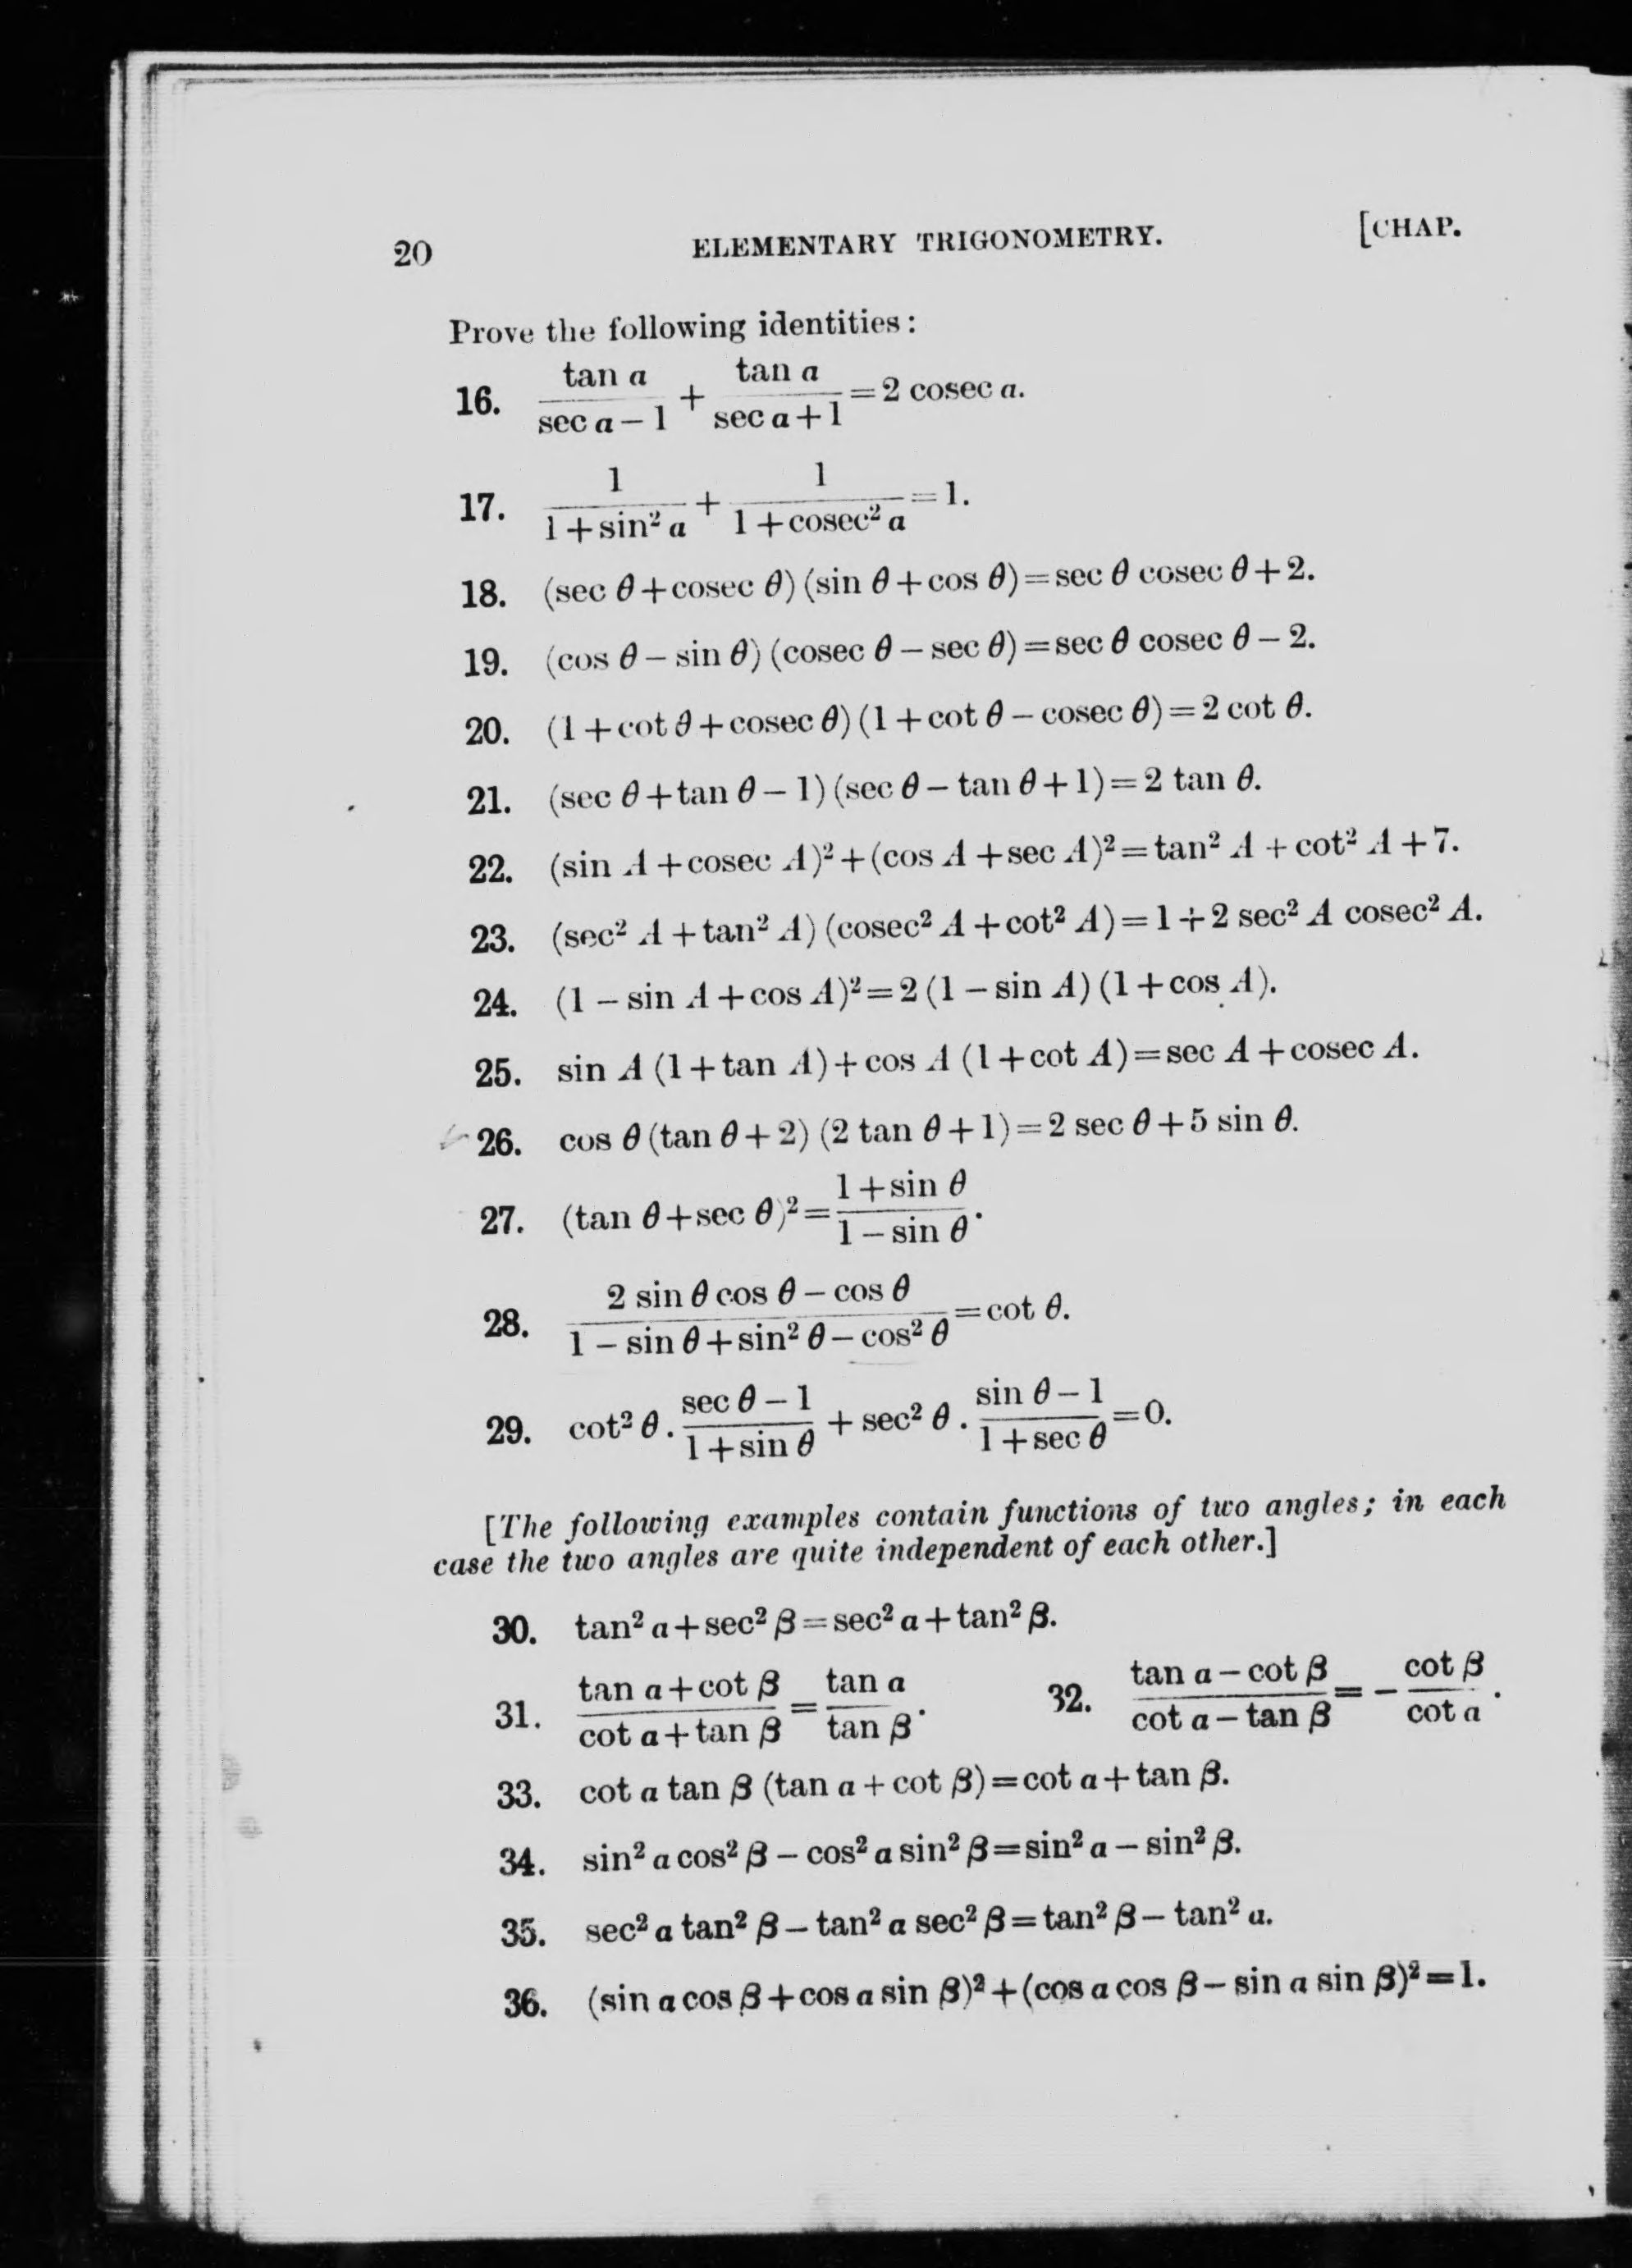 20 ELEMENTARY TRIGONOMETRY. [CHAP.
Prove the following identities:
16. tan α / (sec α − 1) + tan α / (sec α + 1) = 2 cosec α.
17. 1 / (1 + sin² α) + 1 / (1 + cosec² α) = 1.
18. (sec θ + cosec θ) (sin θ + cos θ) = sec θ cosec θ + 2.
19. (cos θ − sin θ) (cosec θ − sec θ) = sec θ cosec θ − 2.
20. (1 + cot θ + cosec θ) (1 + cot θ − cosec θ) = 2 cot θ.
21. (sec θ + tan θ − 1) (sec θ − tan θ + 1) = 2 tan θ.
22. (sin A + cosec A)² + (cos A + sec A)² = tan² A + cot² A + 7.
23. (sec² A + tan² A) (cosec² A + cot² A) = 1 + 2 sec² A cosec² A.
24. (1 − sin A + cos A)² = 2 (1 − sin A) (1 + cos A).
25. sin A (1 + tan A) + cos A (1 + cot A) = sec A + cosec A.
26. cos θ (tan θ + 2) (2 tan θ + 1) = 2 sec θ + 5 sin θ.
27. (tan θ + sec θ)² = (1 + sin θ) / (1 − sin θ).
28. (2 sin θ cos θ − cos θ) / (1 − sin θ + sin² θ − cos² θ) = cot θ.
29. cot² θ . (sec θ − 1) / (1 + sin θ) + sec² θ . (sin θ − 1) / (1 + sec θ) = 0.
[The following examples contain functions of two angles; in each
case the two angles are quite independent of each other.]
30. tan² α + sec² β = sec² α + tan² β.
31. (tan α + cot β) / (cot α + tan β) = tan α / tan β. 32. (tan α − cot β) / (cot α − tan β) = − cot β / cot α.
33. cot α tan β (tan α + cot β) = cot α + tan β.
34. sin² α cos² β − cos² α sin² β = sin² α − sin² β.
35. sec² α tan² β − tan² α sec² β = tan² β − tan² α.
36. (sin α cos β + cos α sin β)² + (cos α cos β − sin α sin β)² = 1.